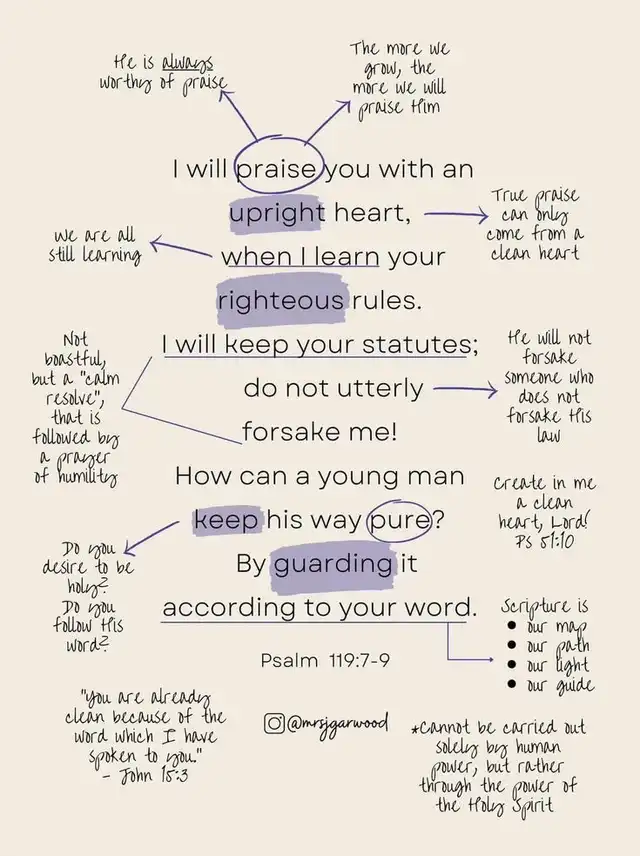 He is always
worthy of praise
The more we
grow, the
more we will
praise Him
I will praise you with an
upright heart,
True praise
can only
come from a
clean heart
We are all
still learning
when I learn your
righteous rules.
Not
boastful,
but a "calm
resolve",
that is
followed by
a prayer
of humility
I will keep your statutes;
do not utterly
forsake me!
He will not
forsake
someone who
does not
forsake His
law
How can a young man
keep his way pure?
Create in me
a clean
heart, Lord!
Ps 51:10
Do you
desire to be
holy?
Do you
follow His
word?
By guarding it
according to your word.
Scripture is
• our map
• our path
• our light
• our guide
Psalm 119:7-9
"You are already
clean because of the
word which I have
spoken to you."
- John 15:3
@mrsjgarwood
*Cannot be carried out
solely by human
power, but rather
through the power of
the Holy Spirit